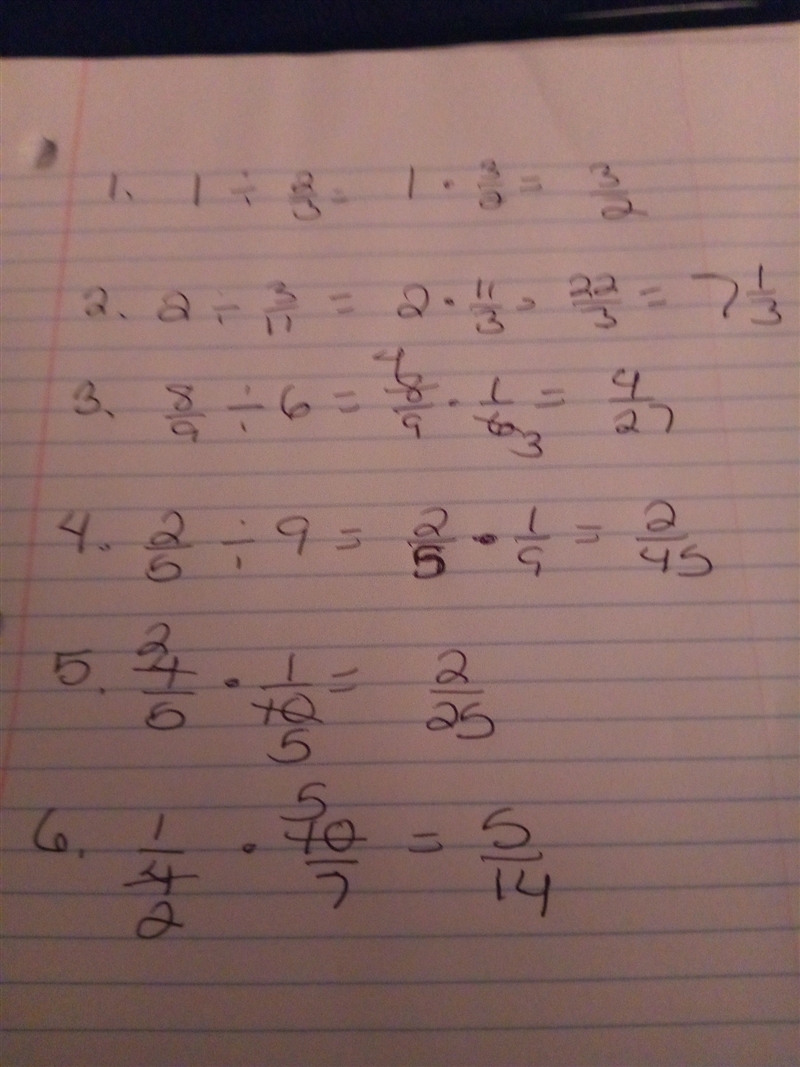 1. 1 ÷ 2/3 = 1 · 3/2 = 3/2
2. 2 ÷ 3/11 = 2 · 11/3 = 22/3 = 7 1/3
3. 8/9 ÷ 6 = 4 8/9 · 1/6 3 = 4/27
4. 2/5 ÷ 9 = 2/5 · 1/9 = 2/45
5. 2 4/5 · 1/10 5 = 2/25
6. 1/4 2 · 5 10/7 = 5/14